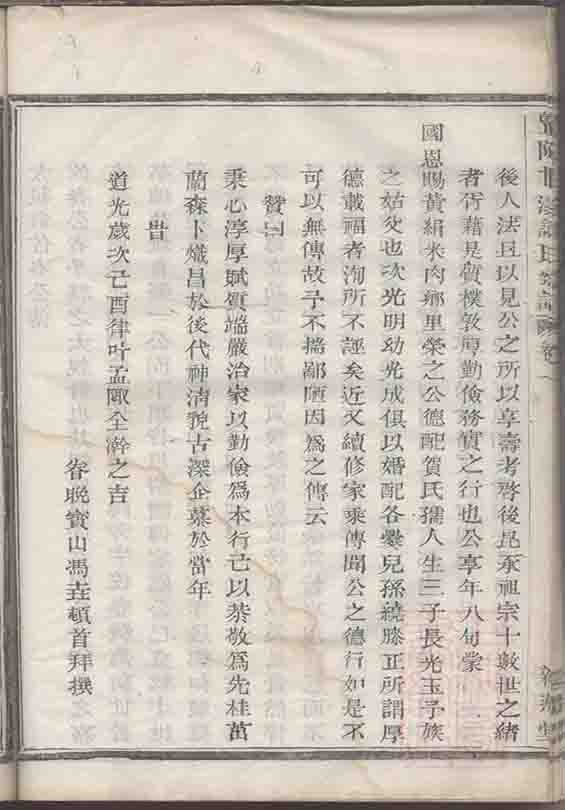 後人法且以見公之所以享壽考啓後昆承祖宗十數世之緒
者胥藉是質樸敦厚勤儉務實之行也公享年八旬蒙
國恩賜黃絹米肉鄉里榮之公德配賀氏孺人生三子長光玉予族
之姑父也次光明幼光成俱以婚配各爨兒孫繞膝正所謂厚
德載福者洵所不誣矣近又續修家乘傳聞公之德行如是不
可以無傳故予不揣鄙陋因為之傳云
贊曰
秉心淳厚賦質端嚴治家以勤儉為本行己以恭敬為先桂茁
蘭森卜熾昌於後代神清貌古深企慕於當年
旹
道光歲次己酉律叶孟陬全澣之吉
眷晚寶山馮垚頓首拜撰